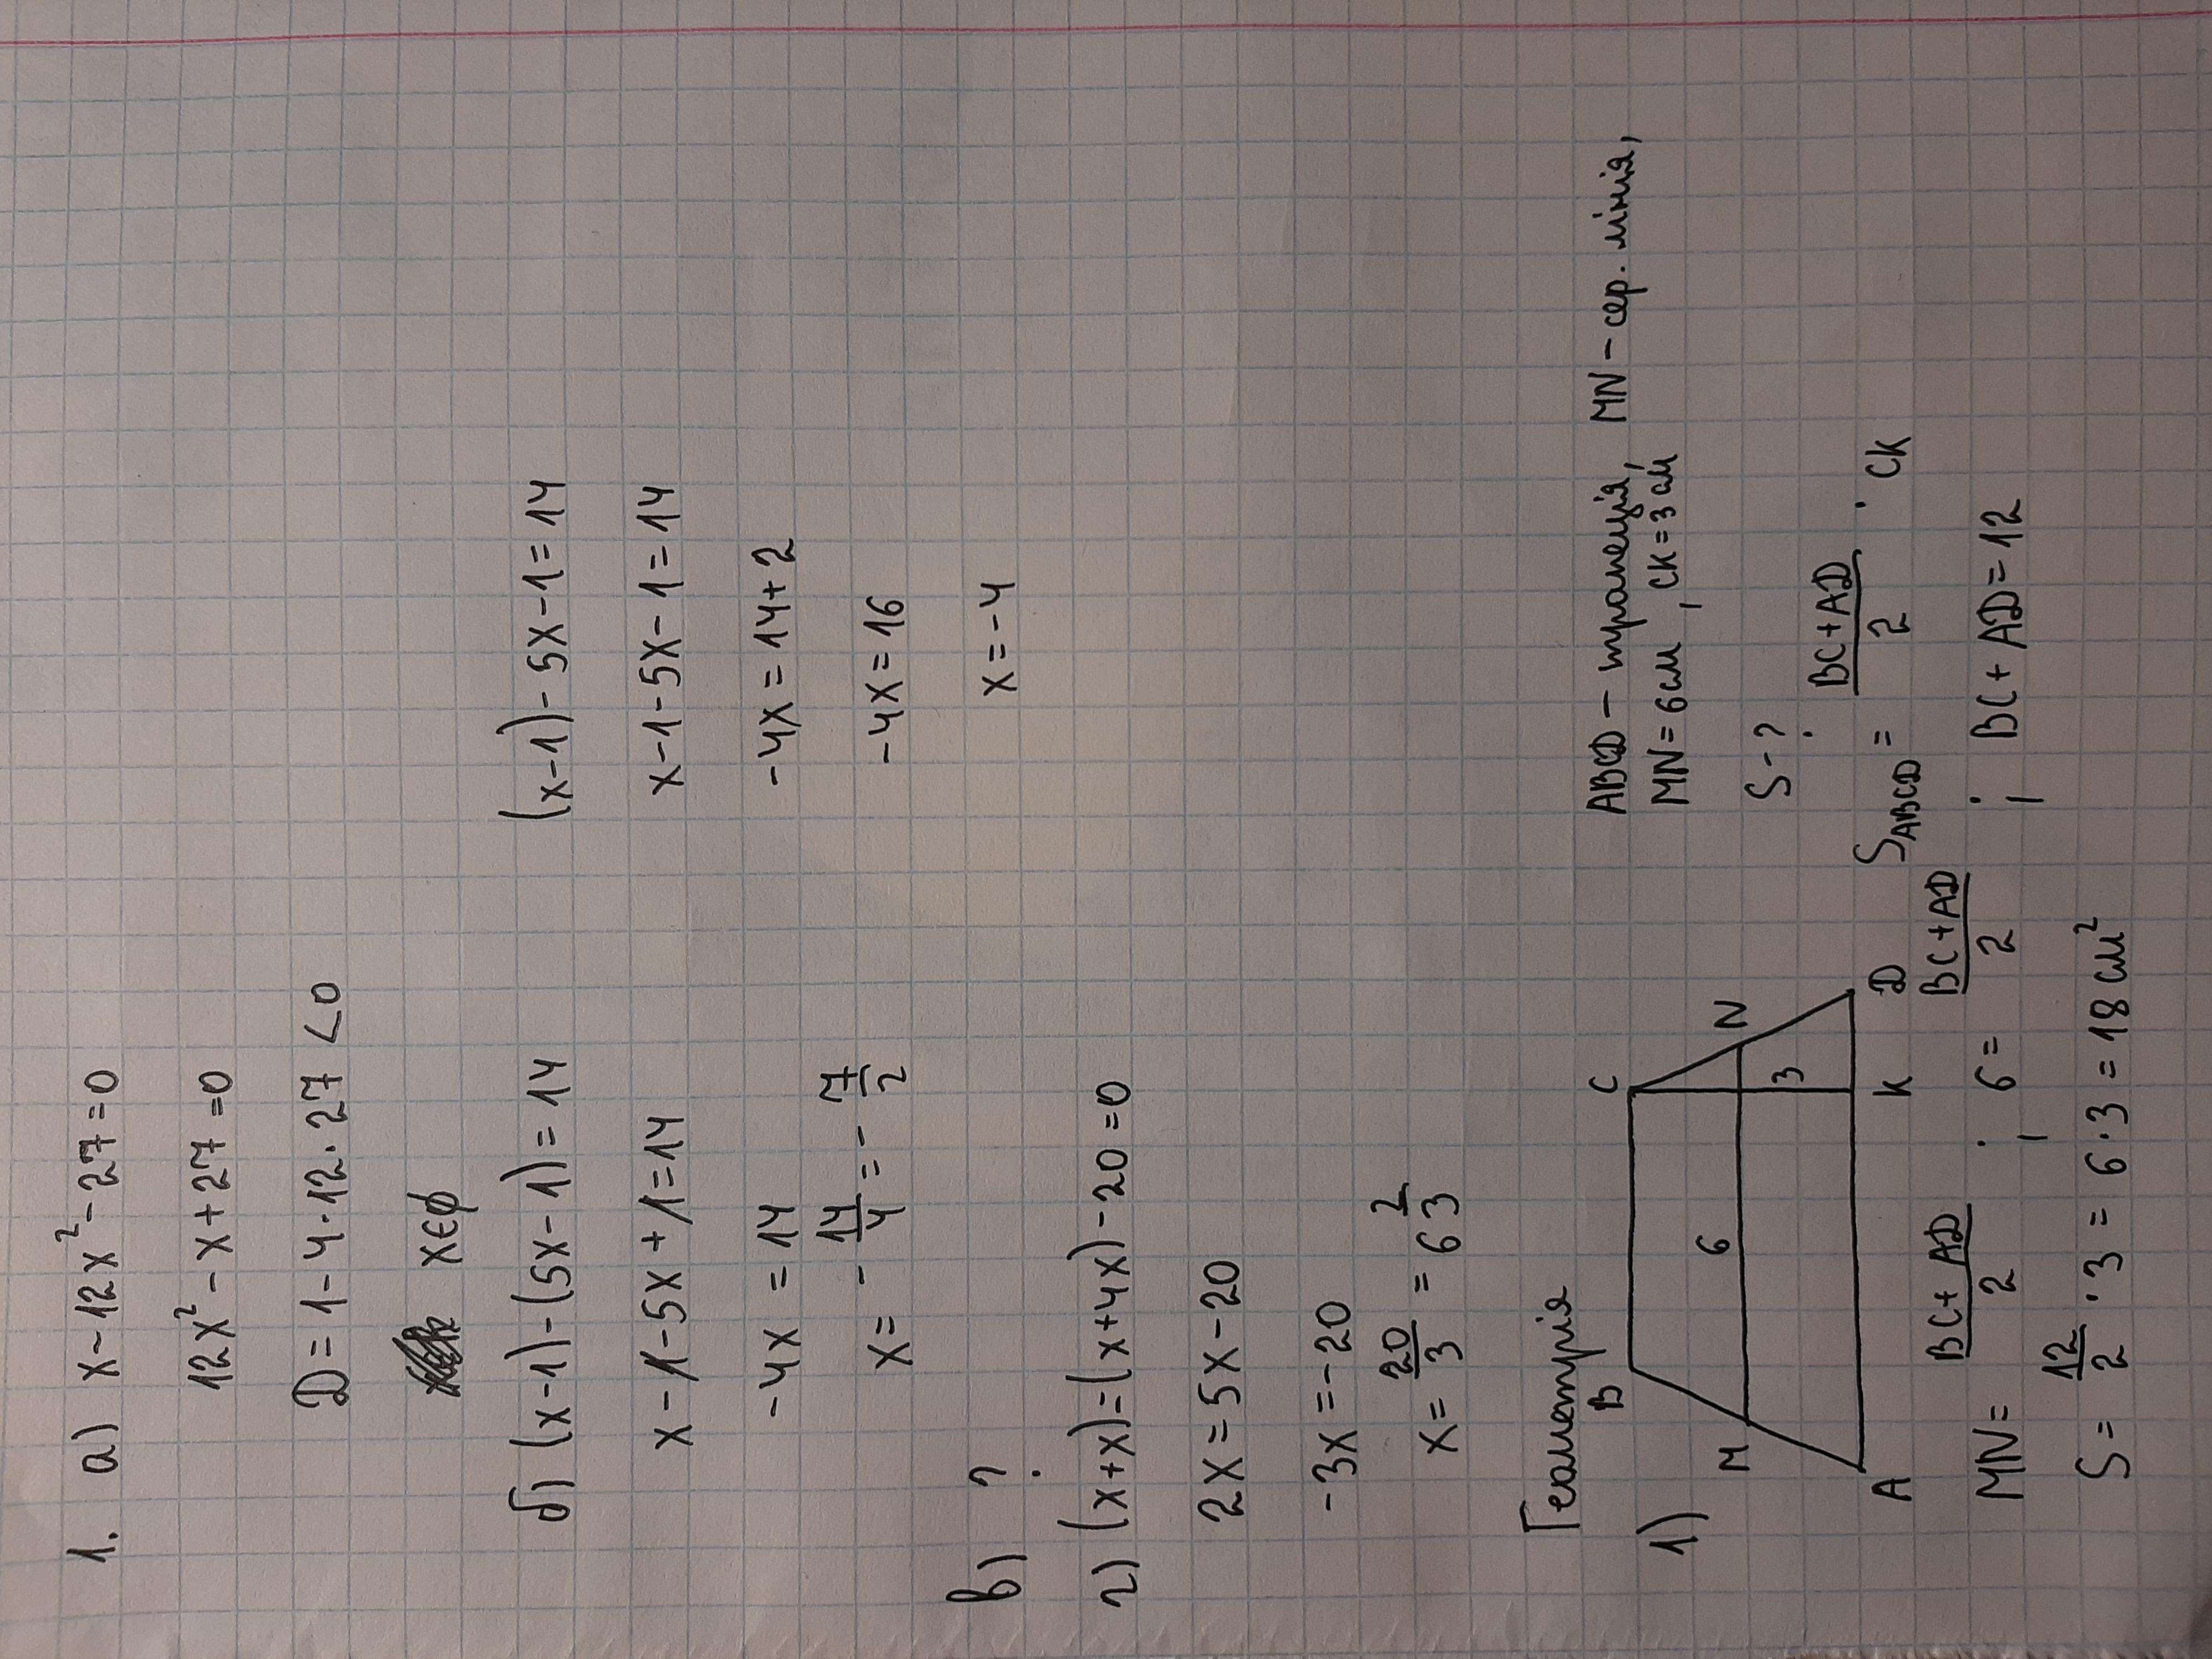 1. а) x-12x²-27=0
12x²-x+27=0
D=1-4·12·27<0
x∈∅
б) (x-1)-(5x-1)=14
x-1-5x+1=14
-4x=14
x= -14/4 = -7/2
(x-1)-5x-1=14
x-1-5x-1=14
-4x=14+2
-4x=16
x=-4
в) ?
г) (x+x)=(x+4x)-20=0
2x=5x-20
-3x=-20
x= 20/3 = 6 2/3
Геометрія
1)
B C
M 6 N
3
A K D
ABCD – трапеція, MN – сер. лінія,
MN=6см, CK=3см
S-?
S_ABCD = (BC+AD)/2 · CK
MN= (BC+AD)/2 ; 6= (BC+AD)/2 ; BC+AD=12
S= 12/2 ·3=6·3=18см²